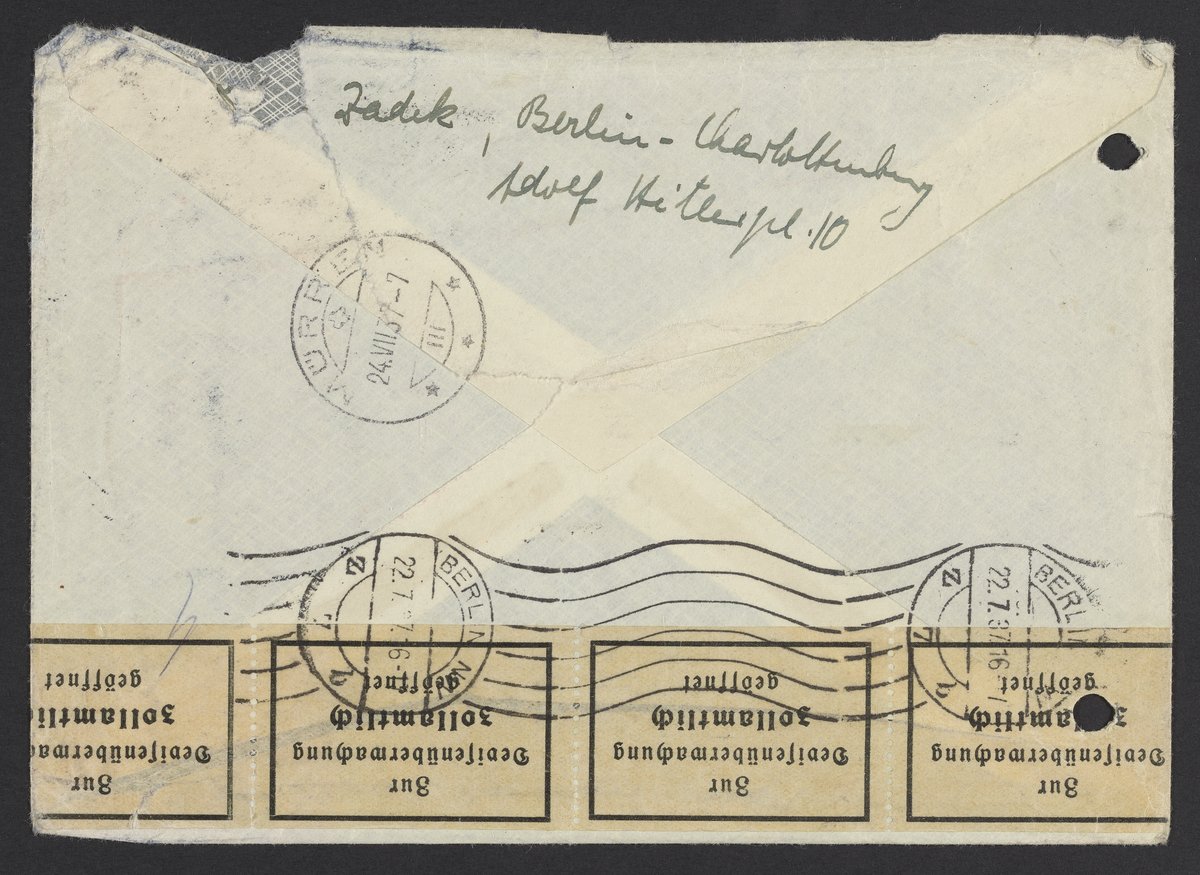 Zadek, Berlin-Charlottenburg
Adolf Hitlerpl. 10
MÜRREN
24.VII.37-7
III
BERLIN
22.7.37.16-
BERLIN
22.7.37.16-
Zur
Devisenüberwachung
zollamtlich
geöffnet
Zur
Devisenüberwachung
zollamtlich
geöffnet
Zur
Devisenüberwachung
zollamtlich
geöffnet
Zur
Devisenüberwachung
zollamtlich
geöffnet